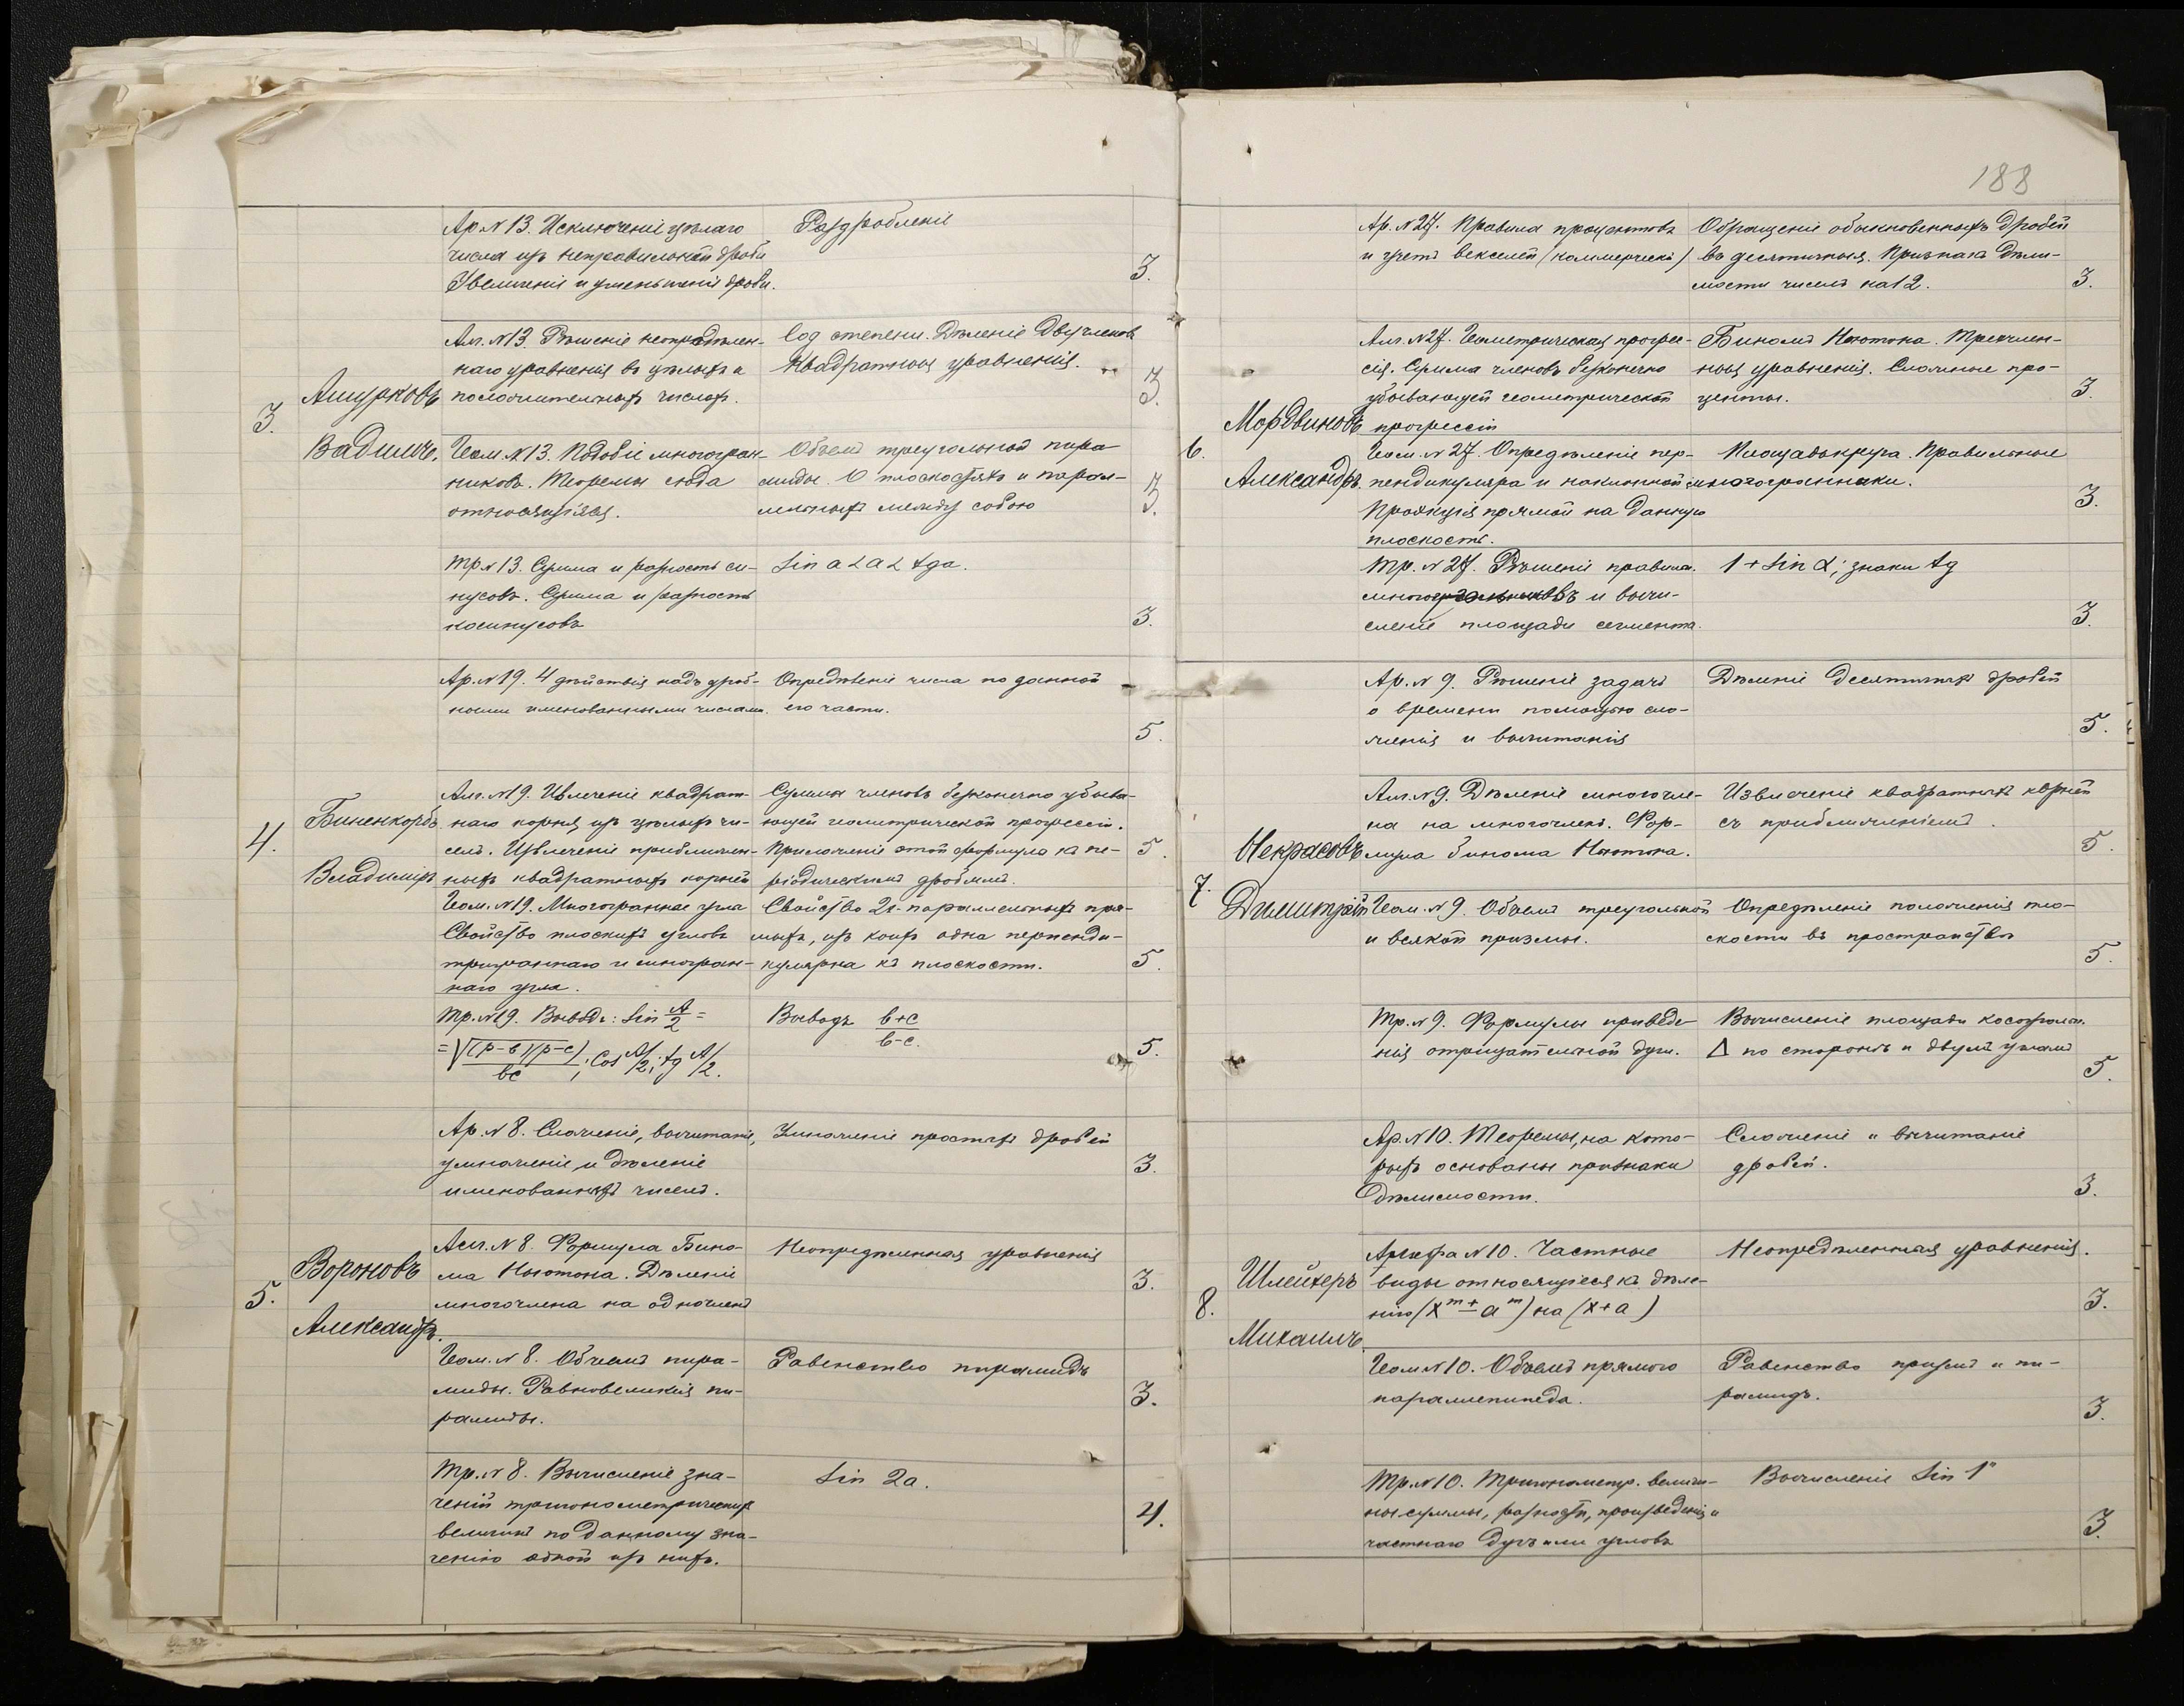 Ар. N 13. Исключеніе цѣлаго
числа изъ неправильной дроби
Увеличеніе и уменьшеніе дроби.
Раздробленіе
3.
Алг. N 13. Рѣшеніе неопредѣлен-
наго уравненія въ цѣлыхъ и
положительныхъ числахъ.
Log степени. Дѣленіе двучленовъ
Квадратныя уравненія.
3.
3.
Ашурковъ
Вадимъ.
Геом. N 13. Подобіе многогран-
никовъ. Теоремы сюда
относящіяся.
Объемъ треугольной пира
миды. О плоскостяхъ и парал-
лельныхъ между собою
3.
Тр. N 13. Сумма и разность си-
нусовъ. Сумма и разность
косинусовъ
Sin a < a < tga.
3.
Ар. N 19. 4 дѣйствія надъ дроб-
ными именованными числами.
Опредѣленіе числа по данной
его части.
5.
4.
Биненкорбъ
Владиміръ
Алг. N 19. Ивлеченіе квадрат-
наго корня изъ цѣлыхъ чи-
селъ. Извлеченіе приближен-
ныхъ квадратныхъ корней
Суммы членовъ безконечно убыва-
ющей геометрической прогрессіи.
Приложеніе этой формулы къ пе-
ріодическимъ дробямъ.
5.
Геом. N 19. Многогранные углы
Свойство плоскихъ угловъ
триграннаго и многогран-
наго угла.
Свойство 2х параллельныхъ пря-
мыхъ, изъ коихъ одна перпенди-
кулярна къ плоскости.
5.
Тр. N 19. Выводъ: Sin A/2 =
= √(p-b)(p-c)/bc; Cos A/2; tg A/2.
Выводъ b+c/b-c.
5.
Ар. N 8. Сложеніе, вычитаніе,
умноженіе и дѣленіе
именованныхъ чиселъ.
Умноженіе простыхъ дробей
3.
5.
Вороновъ
Александръ.
Алг. N 8. Формула Бино-
ма Ньютона. Дѣленіе
многочлена на одночленъ
Неопредѣленныя уравненія
3.
Геом. N 8. Объемъ пира-
миды. Равновеликія пи-
рамиды.
Равенство пирамидъ
3.
Тр. N 8. Вычисленіе зна-
ченій тригонометрическихъ
величинъ по данному зна-
ченію одной изъ нихъ.
Sin 2a.
4.
188
Ар. N 27. Правила процентовъ
и учетъ векселей (коммерческій)
Обращеніе обыкновенныхъ дробей
въ десятичныя. Признакъ дѣли-
мости чиселъ на 12.
3.
6.
Мордвиновъ
Александръ.
Алг. N 27. Геометрическая прогрес-
сія. Сумма членовъ безконечно
убывающей геометрической
прогрессіи
Биномъ Ньютона. Трехчлен-
ныя уравненія. Сложные про-
центы.
3.
Геом. N 27. Опредѣленіе пер-
пендикуляра и наклонной.
Проэкція прямой на данную
плоскость.
Площадь круга. Правильные
многогранники.
3.
Тр. N 27. Рѣшеніе правил.
многоугольниковъ и вычи-
сленіе площади сегмента.
1 + Sin α; знаки tg
3.
Ар. N 9. Рѣшеніе задачъ
о времени помощью сло-
женія и вычитанія
Дѣленіе десятичныхъ дробей
5.
7.
Некрасовъ
Дмитрій
Алг. N 9. Дѣленіе многочле-
на на многочленъ. Фор-
мула бинома Ньютона.
Извлеченіе квадратныхъ корней
съ приближеніемъ.
5.
Геом. N 9. Объемъ треугольной
и всякой призмы.
Опредѣленіе положенія пло-
скости въ пространствѣ
5.
Тр. N 9. Формулы приведе-
нія отрицательной дуги.
Вычисленіе площади косоугольн.
Δ по сторонѣ и двумъ угламъ
5.
Ар. N 10. Теоремы, на кото-
рыхъ основаны признаки
дѣлимости.
Сложеніе и вычитаніе
дробей.
3.
8.
Шлейхеръ
Михаилъ.
N 10. Частные
виды относящіеся къ дѣле-
нію (x^m ± a^m) на (x+a)
Неопредѣленныя уравненія.
3.
Геом N 10. Объемъ прямого
параллепипеда.
Равенство призмъ и пи-
рамидъ.
3.
Тр. N 10. Тригонометр. величи-
ны суммы, разности, произведенія и
частнаго дугъ или угловъ
Вычисленіе Sin 1"
3.